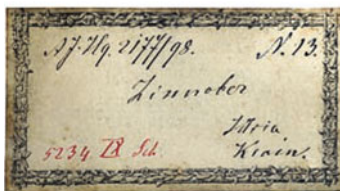 A.J. Hg. 2177/98. N. 13.
Zinnober
Idria
Krain.
5234 IX Sch.